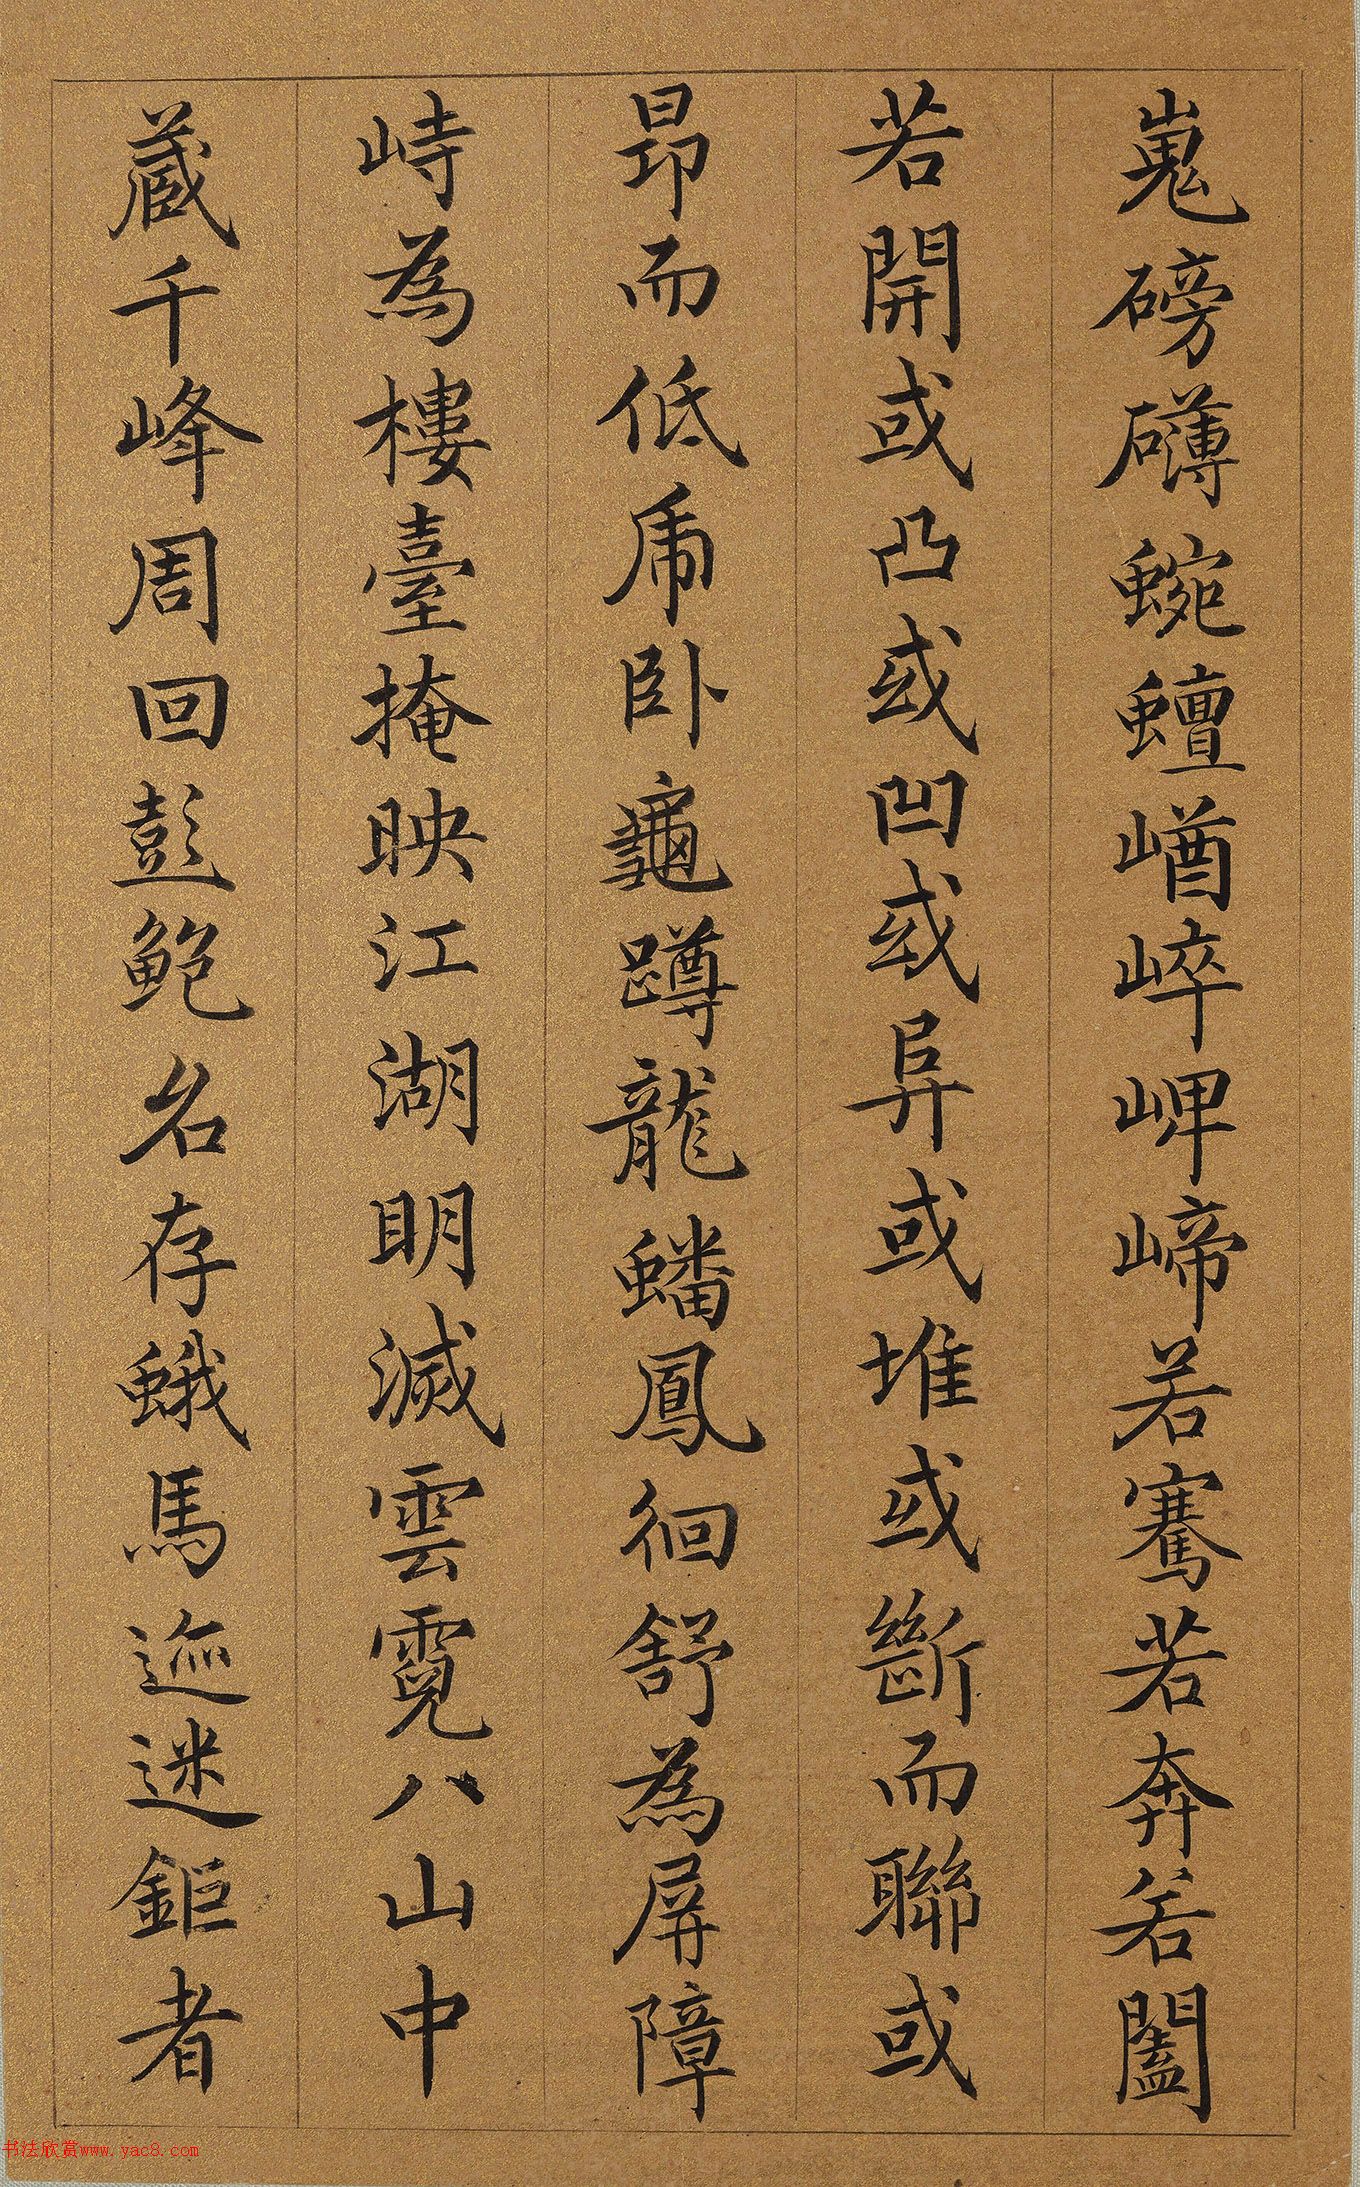 嵬磅礴蜿蟺崷崪岬崹若騫若奔若闔
若開或凸或凹或异或堆或斷而聯或
昂而低虎卧龜蹲龍蟠鳳徊舒為屏障
峙為樓臺掩映江湖明滅雲霓八山中
蔵千峰周回彭鲍名存蛾馬迹迷鉅者
书法欣赏www.yac8.com